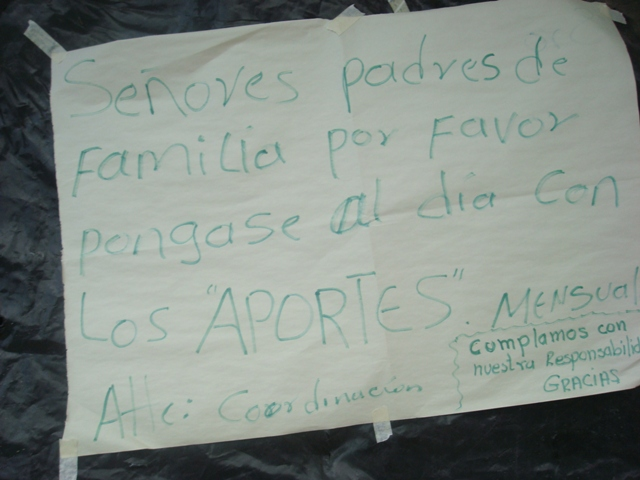 Señores padres de
Familia por Favor
pongase al dia Con
Los "APORTES". MENSUAL
Cumplamos con
nuestra Responsabilid
GRACIAS
Attc: Coordinación